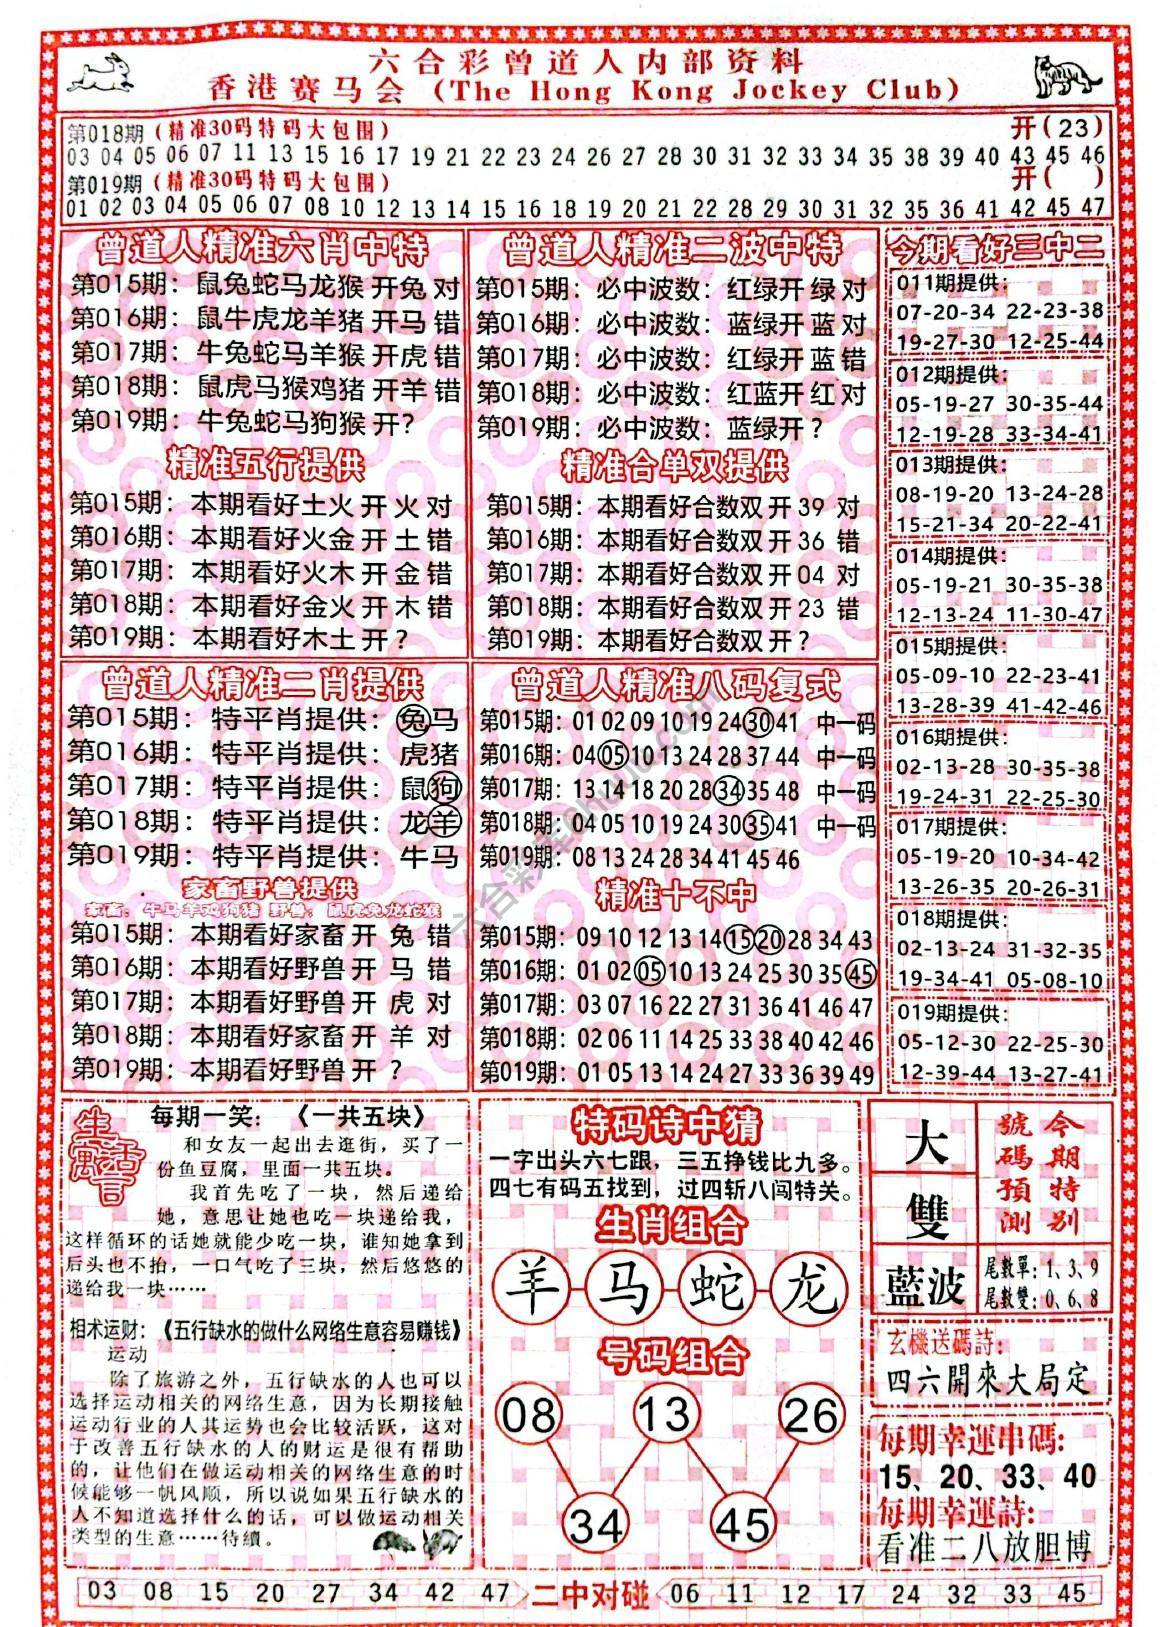 六合彩曾道人内部资料
香港赛马会(The Hong Kong Jockey Club)
第018期(精准30码特码大包围) 开(23)
03 04 05 06 07 11 13 15 16 17 19 21 22 23 24 26 27 28 30 31 32 33 34 35 38 39 40 43 45 46
第019期(精准30码特码大包围) 开( )
01 02 03 04 05 06 07 08 10 12 13 14 15 16 18 19 20 21 22 28 29 30 31 32 35 36 41 42 45 47
曾道人精准六肖中特
第015期：鼠兔蛇马龙猴开兔 对
第016期：鼠牛虎龙羊猪开马 错
第017期：牛兔蛇马羊猴开虎 错
第018期：鼠虎马猴鸡猪开羊 错
第019期：牛兔蛇马狗猴开?
精准五行提供
第015期：本期看好土火开火对
第016期：本期看好火金开土错
第017期：本期看好火木开金错
第018期：本期看好金火开木错
第019期：本期看好木土开？
曾道人精准二波中特
第015期：必中波数：红绿开绿 对
第016期：必中波数：蓝绿开蓝 对
第017期：必中波数：红绿开蓝 错
第018期：必中波数：红蓝开红 对
第019期：必中波数：蓝绿开？
精准合单双提供
第015期：本期看好合数双开39 对
第016期：本期看好合数双开36 错
第017期：本期看好合数双开04 对
第018期：本期看好合数双开23 错
第019期：本期看好合数双开？
今期看好三中二
011期提供：
07-20-34 22-23-38
19-27-30 12-25-44
012期提供：
05-19-27 30-35-44
12-19-28 33-34-41
013期提供：
08-19-20 13-24-28
15-21-34 20-22-41
014期提供：
05-19-21 30-35-38
12-13-24 11-30-47
015期提供：
05-09-10 22-23-41
13-28-39 41-42-46
016期提供：
02-13-28 30-35-38
19-24-31 22-25-30
017期提供：
05-19-20 10-34-42
13-26-35 20-26-31
018期提供：
02-13-24 31-32-35
19-34-41 05-08-10
019期提供：
05-12-30 22-25-30
12-39-44 13-27-41
曾道人精准二肖提供
第015期：特平肖提供：兔马
第016期：特平肖提供：虎猪
第017期：特平肖提供：鼠狗
第018期：特平肖提供：龙羊
第019期：特平肖提供：牛马
家畜野兽提供
家畜：牛马羊鸡狗猪 野兽：鼠虎兔龙蛇猴
第015期：本期看好家畜开 兔 错
第016期：本期看好野兽开 马 错
第017期：本期看好野兽开 虎 对
第018期：本期看好家畜开 羊 对
第019期：本期看好野兽开 ？
曾道人精准八码复式
第015期：01 02 09 10 19 24 30 41 中一码
第016期：04 05 10 13 24 28 37 44 中一码
第017期：13 14 18 20 28 34 35 48 中一码
第018期：04 05 10 19 24 30 35 41 中一码
第019期：08 13 24 28 34 41 45 46
精准十不中
第015期：09 10 12 13 14 15 20 28 34 43
第016期：01 02 05 10 13 24 25 30 35 45
第017期：03 07 16 22 27 31 36 41 46 47
第018期：02 06 11 14 25 33 38 40 42 46
第019期：01 05 13 14 24 27 33 36 39 49
生活寓言
每期一笑：《一共五块》
和女友一起出去逛街，买了一
份鱼豆腐，里面一共五块。
我首先吃了一块，然后递给
她，意思让她也吃一块递给我，
这样循环的话她就能少吃一块，谁知她拿到
后头也不抬，一口气吃了三块，然后悠悠的
递给我一块……
相术运财：《五行缺水的做什么网络生意容易赚钱》
运动
除了旅游之外，五行缺水的人也可以
选择运动相关的网络生意，因为长期接触
运动行业的人其运势也会比较活跃，这对
于改善五行缺水的人的财运是很有帮助
的，让他们在做运动相关的网络生意的时
候能够一帆风顺，所以说如果五行缺水的
人不知道选择什么的话，可以做运动相关
类型的生意……待續。
特码诗中猜
一字出头六七跟，三五挣钱比九多。
四七有码五找到，过四斩八闯特关。
生肖组合
羊 马 蛇 龙
号码组合
08 13 26
34 45
大
雙
藍波
今期特别
號碼預測
尾數單：1、3、9
尾數雙：0、6、8
玄機送碼詩：
四六開來大局定
每期幸運串碼：
15、20、33、40
每期幸運詩：
看准二八放胆博
03 08 15 20 27 34 42 47 二中对碰 06 11 12 17 24 32 33 45